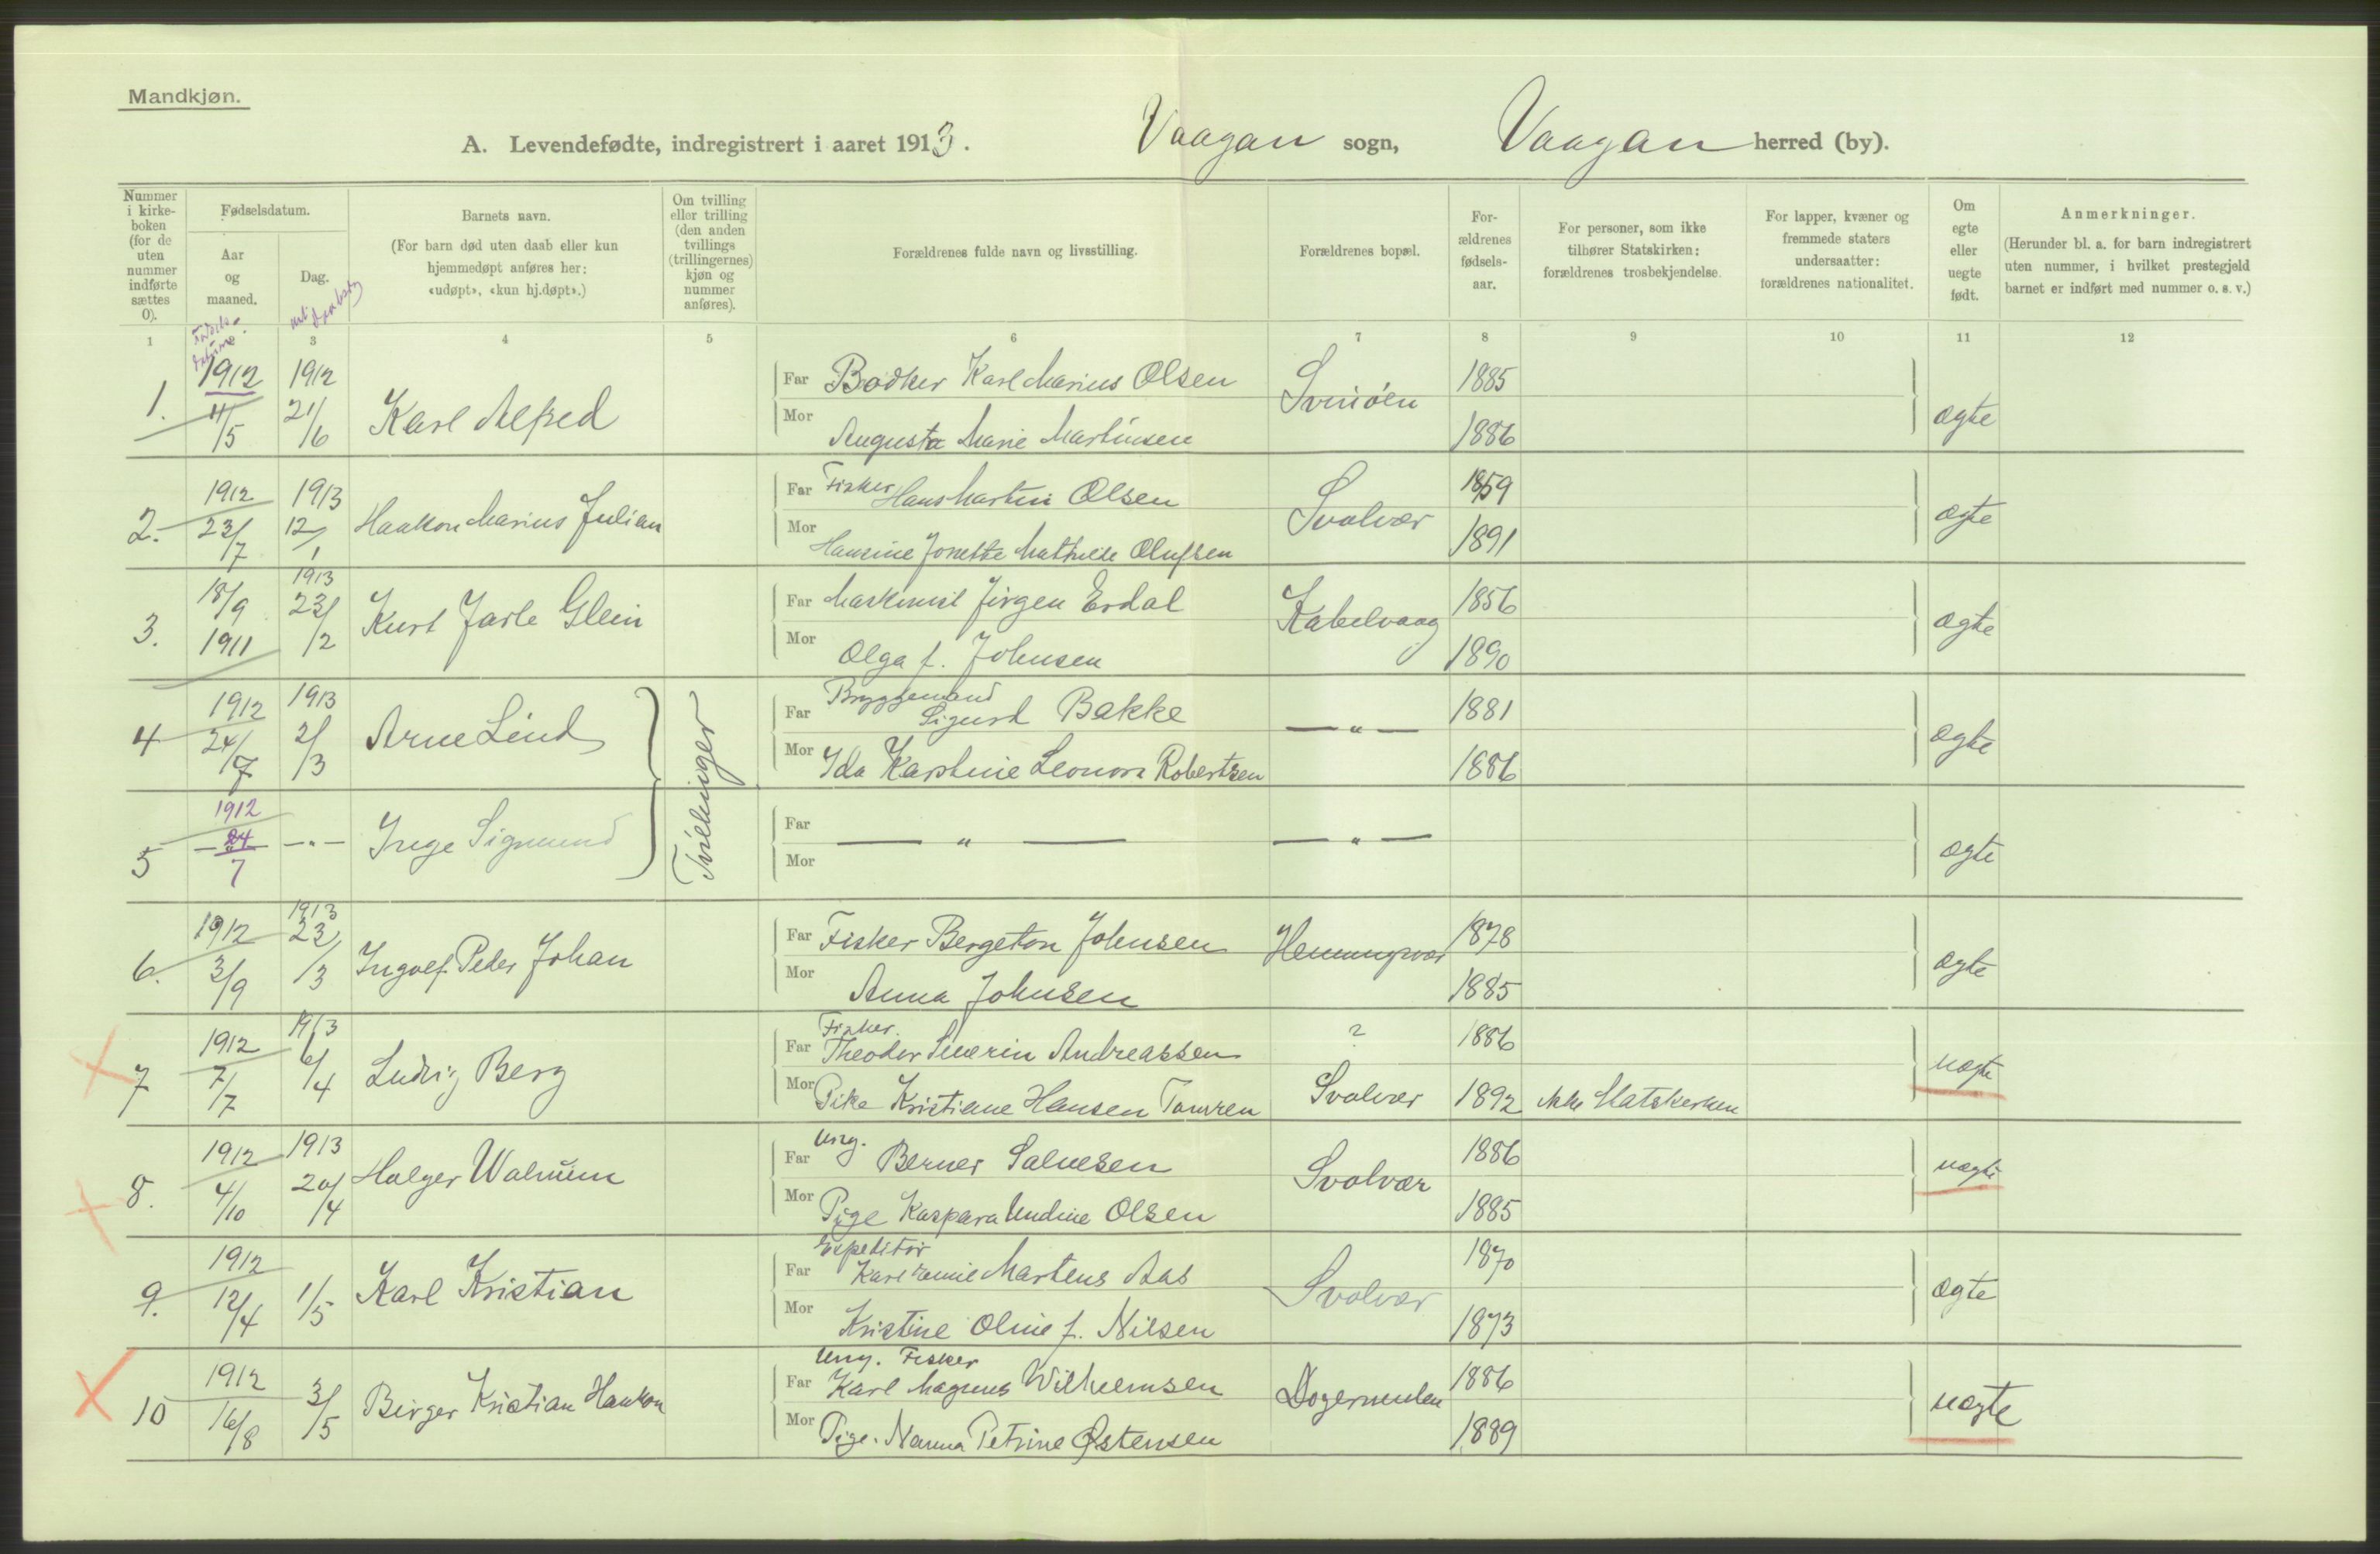 Mandkjøn.
A. Levendefødte, indregistrert i aaret 1913. Vaagan sogn, Vaagan herred (by).
Nummer i kirke-boken (for de uten nummer indførte sættes 0).
Fødselsdatum.
Aar og maaned.
Dag.
Barnets navn.
(For barn død uten daab eller kun hjemmedøpt anføres her: «udøpt», «kun hj.døpt».)
Om tvilling eller trilling (den anden tvillings (trillingernes) kjøn og nummer anføres).
Forældrenes fulde navn og livsstilling.
Forældrenes bopæl.
For-ældrenes fødsels-aar.
For personer, som ikke tilhører Statskirken: forældrenes trosbekjendelse.
For lapper, kvæner og fremmede staters undersaatter: forældrenes nationalitet.
Om egte eller uegte født.
Anmerkninger.
(Herunder bl. a. for barn indregistrert uten nummer, i hvilket prestegjeld barnet er indført med nummer o. s. v.)
1 3 4 5 6 7 8 9 10 11 12
1. 1912 11/5 1912 21/6 Karl Alfred Far Bødker Karl Marius Olsen Svinöen 1885 ægte
Mor Augusta Marie Martinsen 1886
2. 1912 23/7 1913 12/1 Haakon Marius Julian Far Fisker Hans Martin Olsen Svolvær 1859 ægte
Mor Hansine Jonette Mathilde Olufsen 1891
3. 18/9 1911 1913 23/2 Kurt Jarle Glein Far Maskinist Jørgen Erdal Kabelvaag 1856 ægte
Mor Olga f. Johnsen 1890
4 1912 24/7 1913 2/3 Arne Lind Tvillinger Far Bryggemand Sigurd Bakke — " — 1881 ægte
Mor Ida Karoline Leonora Robertsen 1886
5 1912 24/7 — " — Inge Sigmund Far — " — — " — ægte
Mor
6. 1912 3/9 1913 23/3 Ingolf Peder Johan Far Fisker Bergeton Johnsen Henningvær 1878 ægte
Mor Anna Johnsen 1885
7 1912 7/7 1913 6/4 Ludvig Berg Far Fisker Theodor Severin Andreassen ? 1886 uægte
Mor Pike Kristiane Hansen Svolvær 1892 ikke Statskirken
8. 1912 4/10 1913 20/4 Holger Walnum Far Ung. Berner Salvesen Svolvær 1886 uægte
Mor Pige Kaspara Undine Olsen 1885
9. 1912 12/4 1/5 Karl Kristian Far Expeditør Karl Emil Martens Aas Svolvær 1870 ægte
Mor Kristine Oline f. Nilsen 1873
10 1912 16/8 3/5 Birger Kristian Haakon Far Ung. Fisker Karl Magnus Wilhelmsen 1886 uægte
Mor Pige. Nanna Petrine Østensen 1889